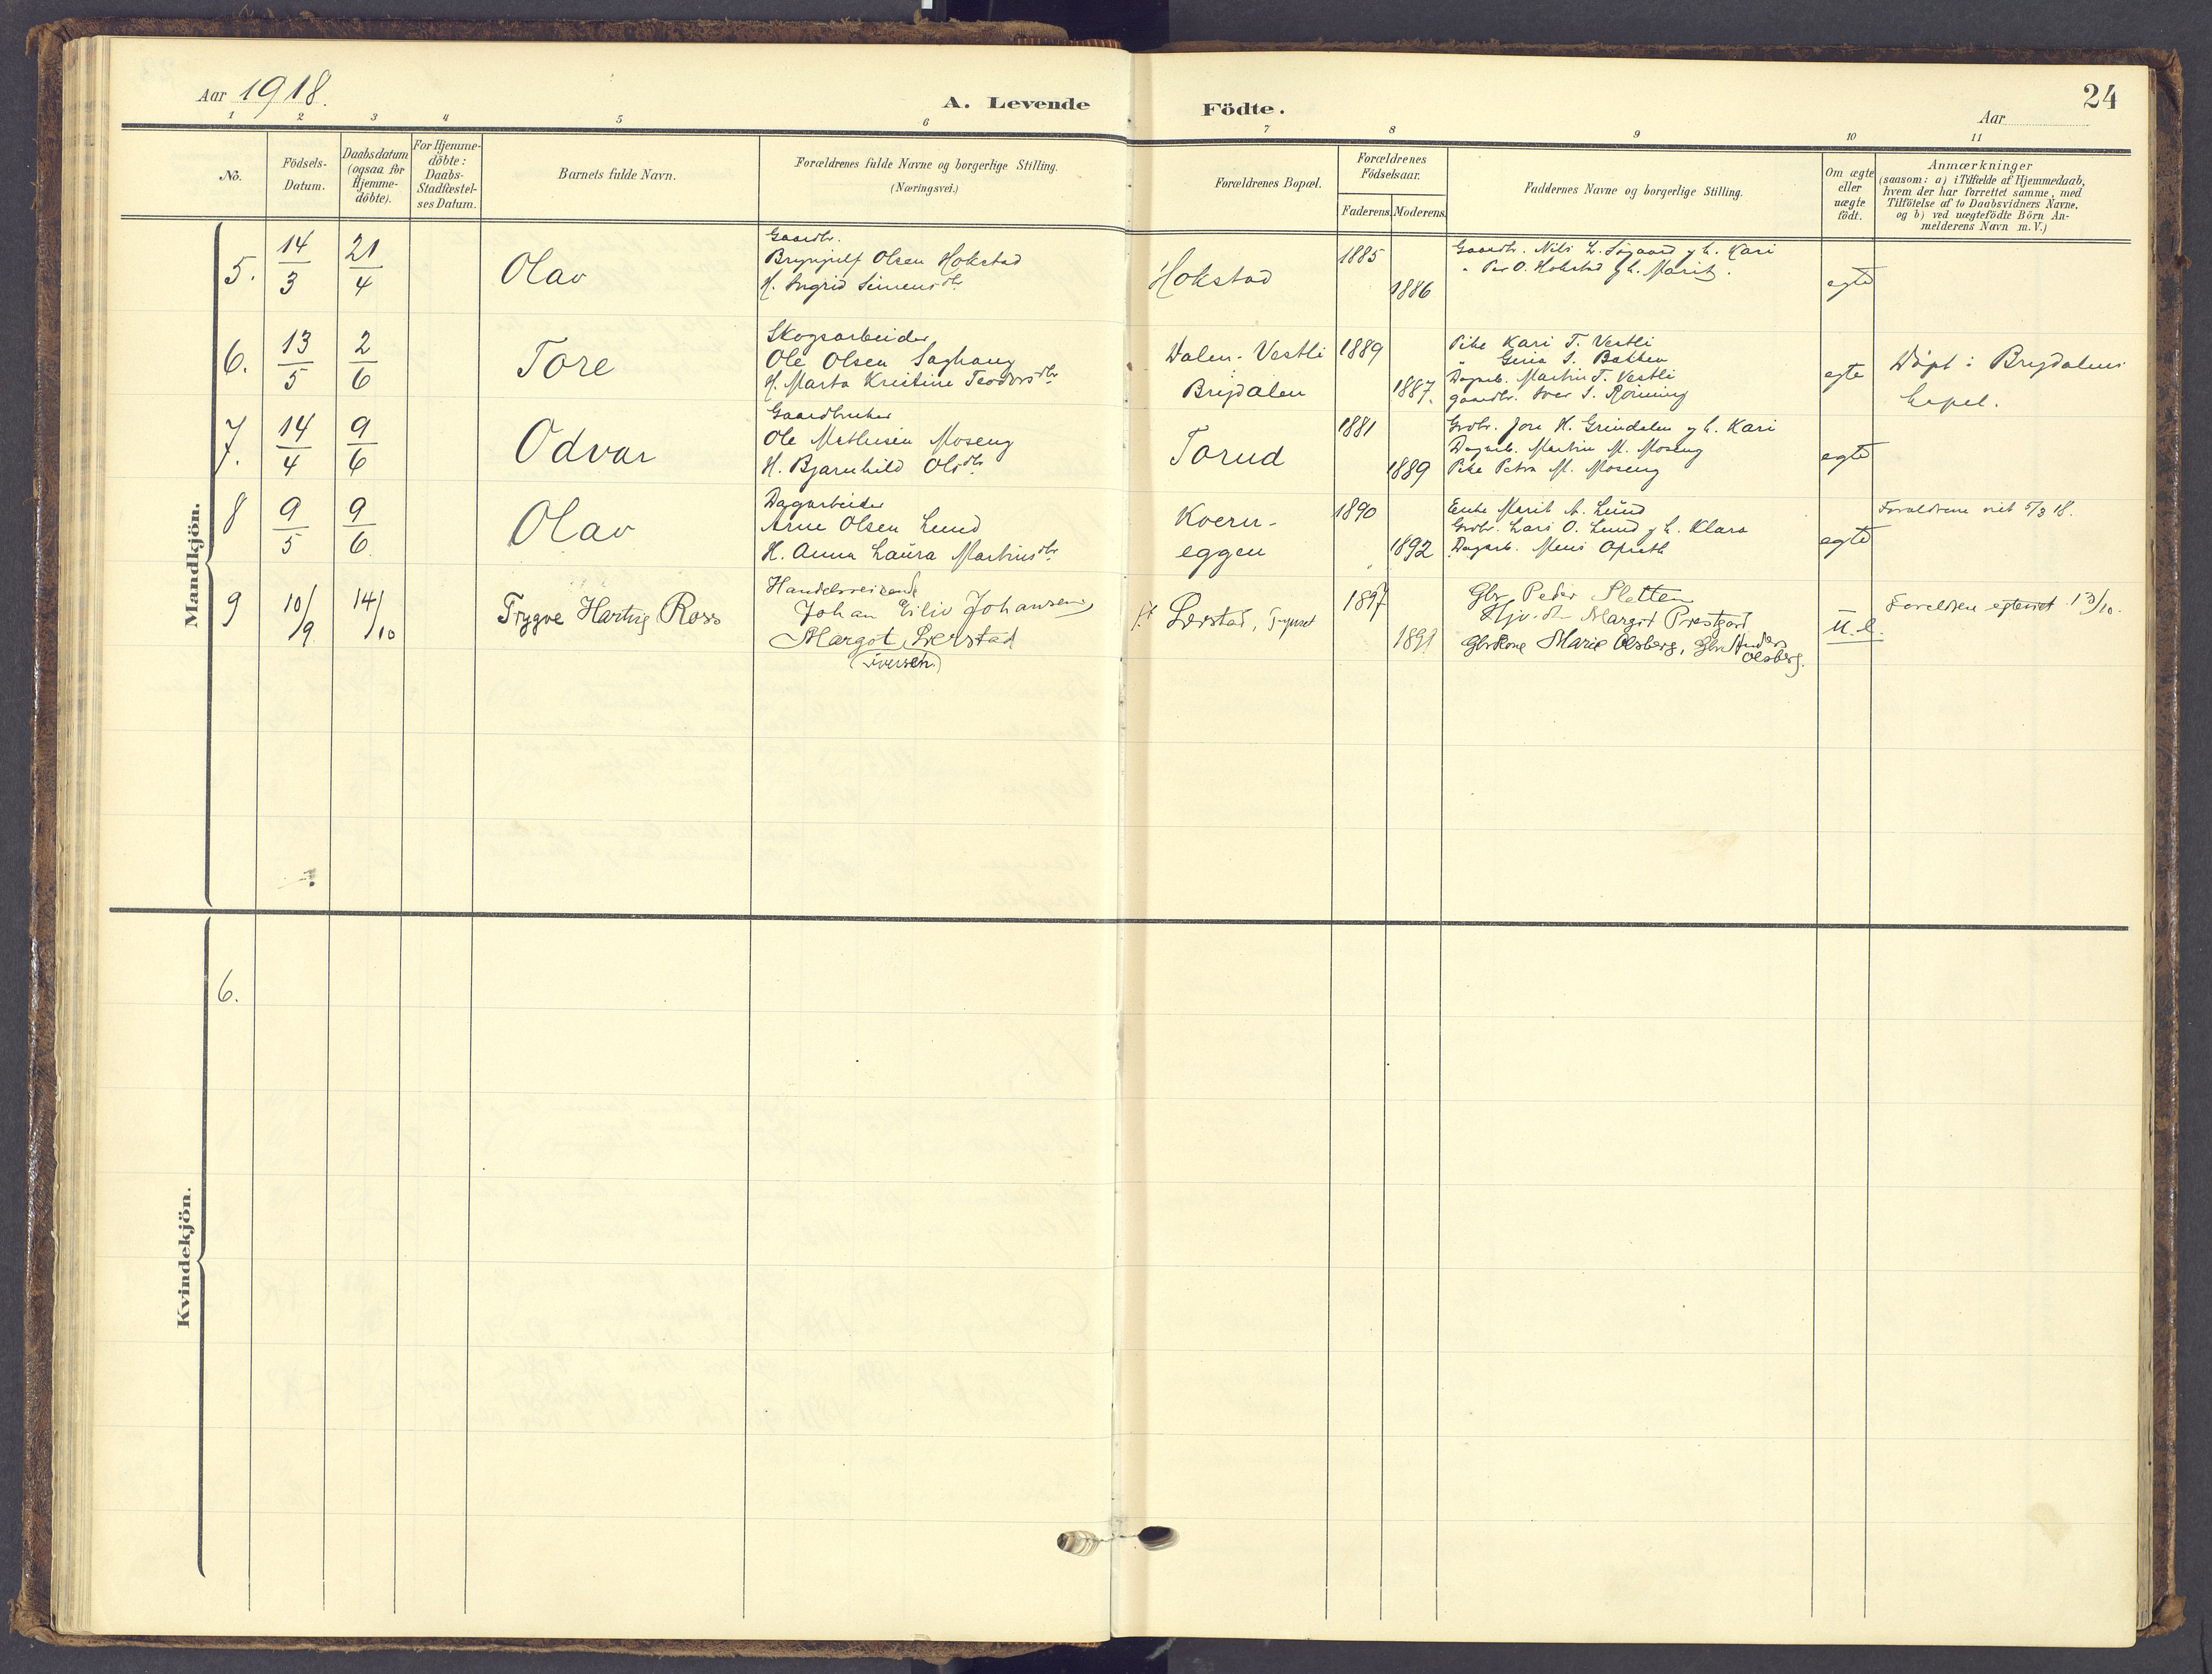 Aar 1918.
A. Levende
Födte.
Aar
24
1 2 3 4 5 6 7 8 9 10 11
No.
Födsels-
Datum.
Daabsdatum
(ogsaa for
Hjemme-
döbte).
For Hjemme-
döbte:
Daabs-
Stadfæstel-
ses Datum.
Barnets fulde Navn.
Forældrenes fulde Navne og borgerlige Stilling.
(Næringsvei.)
Forældrenes Bopæl.
Forældrenes
Födselsaar.
Faderens.
Moderens.
Faddernes Navne og borgerlige Stilling.
Om ægte
eller
uægte
födt.
Anmærkninger
(saasom: a) i Tilfælde af Hjemmedaab,
hvem der har forrettet samme, med
Tilföielse af to Daabsvidners Navne,
og b) ved uægtefödte Börn An-
melderens Navn m. V.)
Mandkjön.
5. 14/3 21/4 Olav
Gaardbr.
Brynjulf Olsen Hokstad
H. Ingrid Simensdtr.
Hokstad
1885
1886
Gaardbr. Nils L. Søgaard g h. Kari
" Per O. Hokstad g h. Marit.
egte
6. 13/5 2/6 Tore
Skogsarbeider
Ole Olsen Saghaug
H. Marta Kristine Teodorsdtr.
Dalen-Vestli
Brydalen
1889
1887.
Pike Kari T. Vestli
" S. Bakken
Dagarb. Martin T. Vestli
Gaardbr. Iver S. Rønning
egte
Døpt i Brydalens
kapel.
7. 14/4 9/6 Odvar
Gaardbruker
Ole Mathisen Moseng
H. Bjarnhild Olsdtr.
Torud
1881
1889
Grdbr. Jon H. Grindalen g h. Kari
Dagarb. Martin M. Moseng
Pike Petra M. Moseng
egte
8 9/5 9/6. Olav
Dagarbeider
Arne Olsen Lund
H. Anna Laura Martinsdtr.
Kvern-
eggen
1890
1892
Enke Marit A. Lund
Grdbr. Lars O. Lund g h. Klara
Dagarb. Mens
egte
Forældrene viet 5/3 18.
9 10/9. 14/10 Trygve Hartvig Ross
Handelsreisende
Johan Eiliv Johansen
Margot Lerstad
(Iversen)
Lerstad, Tynset
1897
1891
Gbr. Peder Sletten
Margot Prestgard
Gbrkone Marie Olsberg, Gbr. Anders
Olsberg.
U. e.
Foreldre egteviet 13/10.
Kvindekjön.
6.